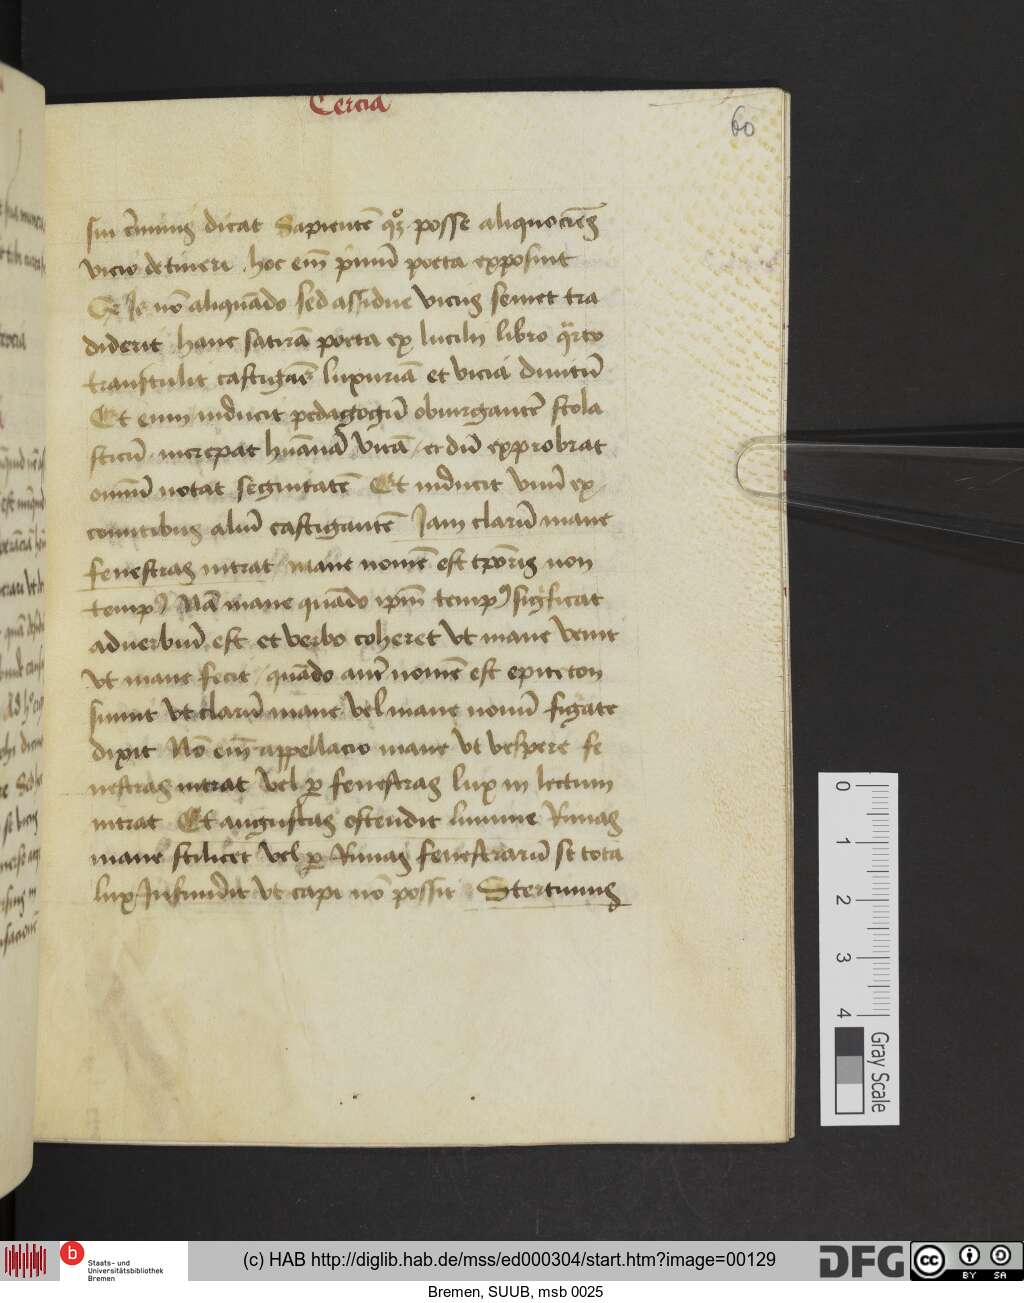 Tercia
60
sui cīminis dicat Sapientē qͦꝫ posse aliquociēs
vicio detineri . hoc em̄ pīmū poeta exposuit
Se is nō aliquādo sed assidue vicijs semet tra
diderit hanc satirā poeta ex lucilij libro qͣrto
transtulit castigās luxuriā et vicia diuitū
Et enim inducit pedagogū obiurgantē scola
sticū increpat hūanā vitā et dū exprobrat
omniū notat segnitatē Et inducit vnū ex
comitibus aliū castigantē Jam clarū mane
fenestras intrat mane nomē est tꝑoris non
tempꝰ Nā mane quādo ipm̄ tempꝰ significat
aduerbiū est et verbo coheret vt mane venit
vt mane fecit quādo autē nomē est epiteton
sumit vt clarū mane vel mane nouū figate
dixit Nō em̄ appellacio mane vt vespere fe
nestras intrat vel ꝑ fenestras lux in lectum
intrat Et angustas ostendit lumine Rimas
mane scilicet vel ꝑ Rimas fenestrarū se tota
lux Infundit vt capi nō possit Stertimus
0
1
2
3
4
Gray Scale
b
Staats- und
Universitätsbibliothek
Bremen
(c) HAB http://diglib.hab.de/mss/ed000304/start.htm?image=00129
DFG
cc
BY SA
Bremen, SUUB, msb 0025